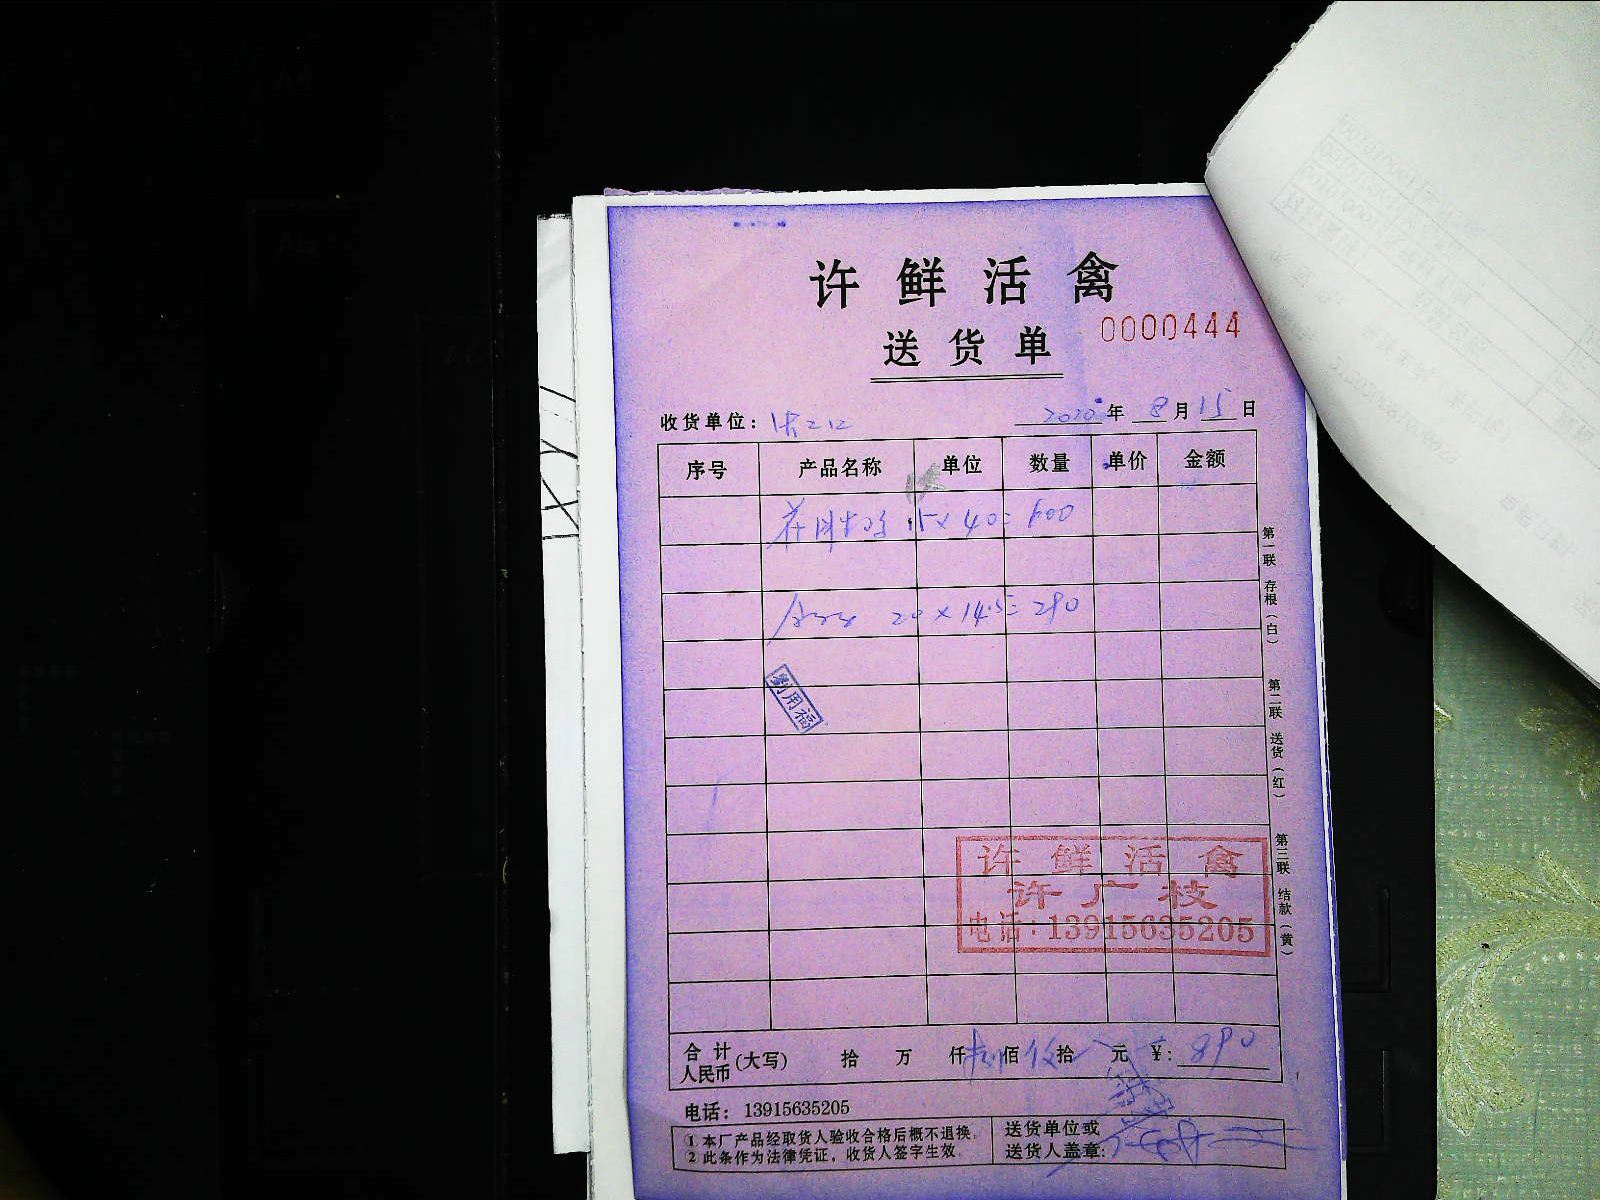 许鲜活禽
送货单
0000444
收货单位:
2020年 8月15日
序号 产品名称 单位 数量 单价 金额
15×40=600
20×14.5=290
劉用福
许鲜活禽
许广枝
电话:13915635205
合计人民币(大写) 拾 万 仟 捌佰 玖拾 元 ¥:890
电话:13915635205
1 本厂产品经取货人验收合格后概不退换。
2 此条作为法律凭证,收货人签字生效。
送货单位或
送货人盖章:
第一联 存根(白)
第二联 送货(红)
第三联 结款(黄)